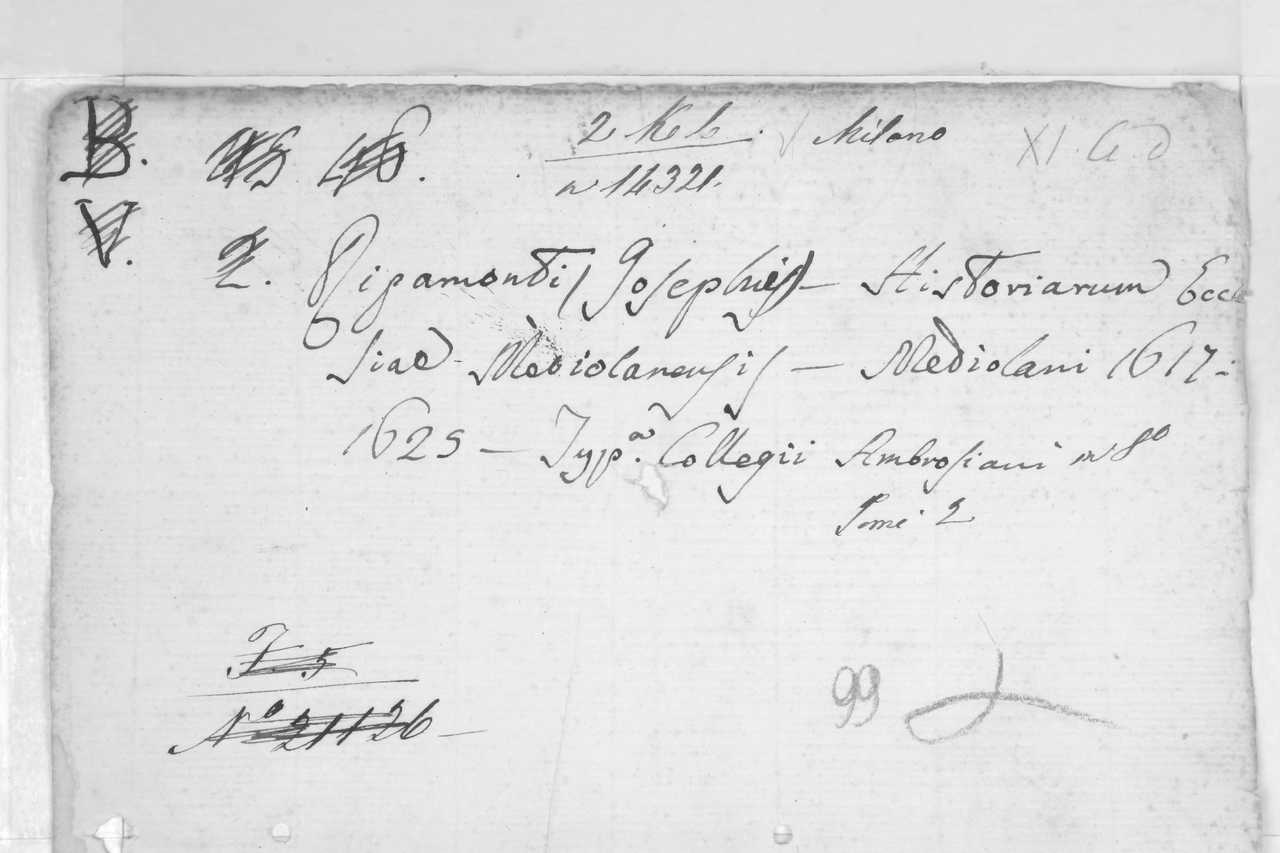 B.
V.
2 K b. Milano
n 14321.
XI. G. d
2. Ripamontis Josephi – Historiarum Eccle
siae Mediolanensis – Mediolani 1617-
1625 – Typ.a Collegii Ambrosiani in 8o
Tomi 2
F. 5
No 21126
99